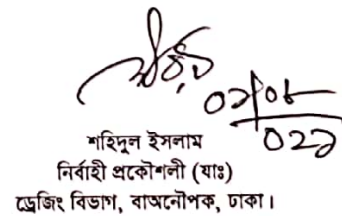 শহিদুল ইসলাম
নির্বাহী প্রকৌশলী (যাঃ)
ড্রেজিং বিভাগ, বাঅনৌপক, ঢাকা।